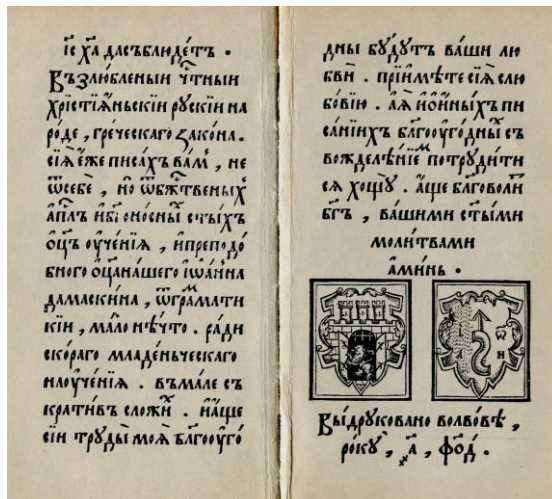 і҃с х҃а да съблюдетъ .
Възлюбленыи ч҃тныи
хрїстїа́ньскїи рускїи на
роде , греческаго Ѕакона .
сїѧ́ е́же писахъ ва́м , не
ѿ себе , но ѿ бж҃твеныхъ
а҆пл҃ъ и҆ бг҃оносны ст҃ыхъ
ѻ҆ц҃ъ оу҆че́нїѧ , и҆ преподо́
бного ѻ҆ц҃а на́шего їѡа́нна
дамаски́на , ѿ грамати
кїи , ма́ло нѣ́что . ра́ди
ско́раго младе́ньческаго
наоуче́нїѧ . въ ма́ле съ
крати́въ сложи . и҆ а́ще
сїи труды̀ моѧ̀ бл҃гооуго́
дны бу́дутъ ва́ши лю
бви . прїимѣ́те сїѧ̀ слю
бовїю . а҆ ѧ҆ и҆ и҆ны́хъ пи
са́нїихъ бл҃гооуго́дны съ
вожделѣ́нїем потруди́ти
сѧ хощу̀ . а́ще бл҃говоли
бг҃ъ , ва́шими ст҃ы́ми
моли́твами
а҆ми́нь .
Вы́друковано во льво́вѣ ,
ро́ку , ҂а҃ , фо҃д .